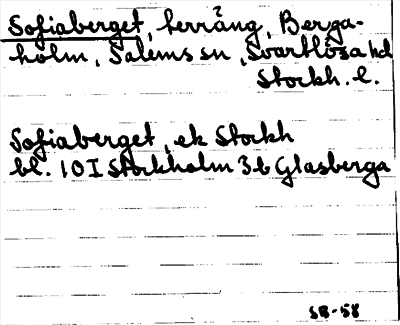 Sofiaberget, terräng, Berga-
holm, Salems sn, Svartlösa hd
Stockh. l.
Sofiaberget, ek Stockh
bl. 10 I Stockholm 3b Glasberga
SB-58